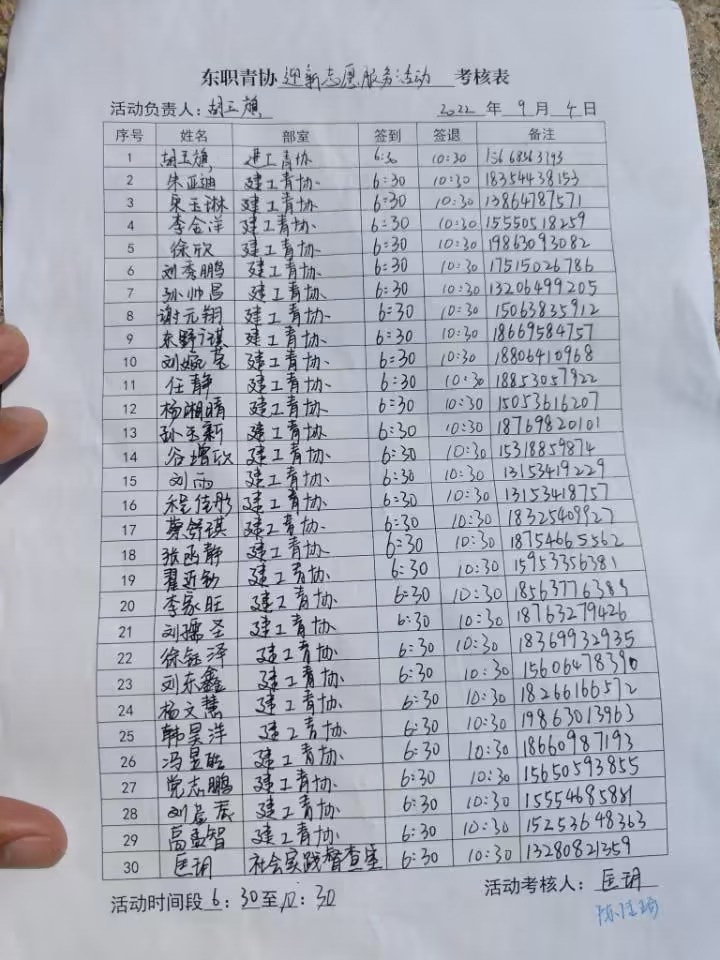 东职青协 迎新志愿服务活动 考核表
活动负责人: 胡玉旗 2022 年 9 月 4 日
序号 姓名 部室 签到 签退 备注
1 胡玉旗 建工青协 6:30 10:30
2 朱亚迪 建工青协 6:30 10:30 18354438153
3 宋玉琳 建工青协 6:30 10:30 13864787571
4 李金洋 建工青协 6:30 10:30 15550518259
5 徐欣 建工青协 6:30 10:30 19863093082
6 刘秀鹏 建工青协 6:30 10:30 17515026786
7 孙帅昌 建工青协 6:30 10:30 13206499205
8 谢元翔 建工青协 6:30 10:30 15063835912
9 东野广祺 建工青协 6:30 10:30 18669584757
10 刘婉莹 建工青协 6:30 10:30 18806410968
11 任静 建工青协 6:30 10:30 18853057922
12 杨湘晴 建工青协 6:30 10:30 15053616207
13 孙玉新 建工青协 6:30 10:30 18769820101
14 谷增欣 建工青协 6:30 10:30 15318859874
15 刘雨 建工青协 6:30 10:30 13153419229
16 程佳彤 建工青协 6:30 10:30 13153418757
17 蔡舒琪 建工青协 6:30 10:30 18325409927
18 张函静 建工青协 6:30 10:30 18754665562
19 建工青协 6:30 10:30 15953356381
20 李家旺 建工青协 6:30 10:30 18563776389
21 刘孺圣 建工青协 6:30 10:30 18763279426
22 徐钰泽 建工青协 6:30 10:30 18369932935
23 刘东鑫 建工青协 6:30 10:30 15606478390
24 杨文慧 建工青协 6:30 10:30 18266166572
25 韩昊洋 建工青协 6:30 10:30 19863013963
26 冯昱皓 建工青协 6:30 10:30 18660987193
27 党志鹏 建工青协 6:30 10:30 15650593855
28 建工青协 6:30 10:30 15554685881
29 高孟智 建工青协 6:30 10:30 15253648363
30 匡玥 社会实践督查室 6:30 10:30 13280821359
活动时间段 6:30至10:30 活动考核人: 匡玥